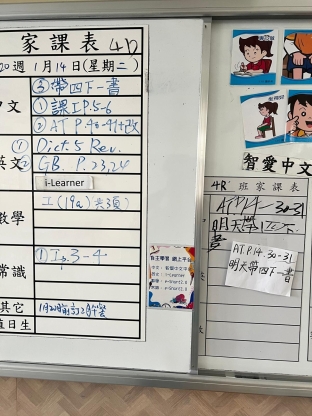 家課表 4D
20週 1月14日(星期二)
③帶四下一書
中文 ①課I P.5-6
② AT P.40-41+改
英文 ① Dict 5 Rev.
② GB. P.23,24
i-Learner
數學 工(19a)共3頁)
常識 ① 工p.3-4
其它
值日生
自主學習 網上平台
智愛中文
4R 班家課表
AT P.14. 30-31
明天帶四下一
書
AT P.14. 30-31
明天帶四下一書